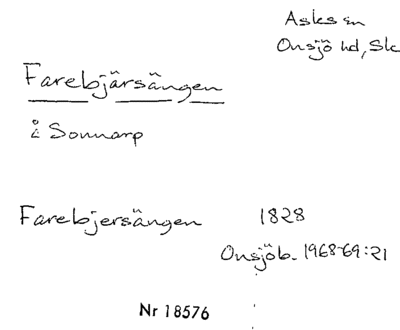 Asks sn
Onsjö hd, Sk
Farebjärsängen
i Sonnarp
Farebjersängen 1828
Onsjöb. 1968-69:21
Nr 18576